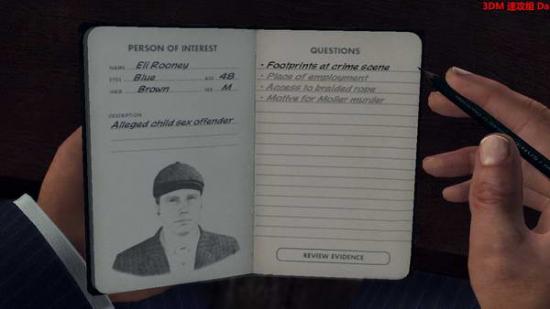 3DM 速攻组 Da
PERSON OF INTEREST
NAME Eli Rooney
EYES Blue AGE 48
HAIR Brown SEX M
DESCRIPTION
Alleged child sex offender
QUESTIONS
• Footprints at crime scene
• Place of employment
• Access to braided rope
• Motive for Moller murder
REVIEW EVIDENCE